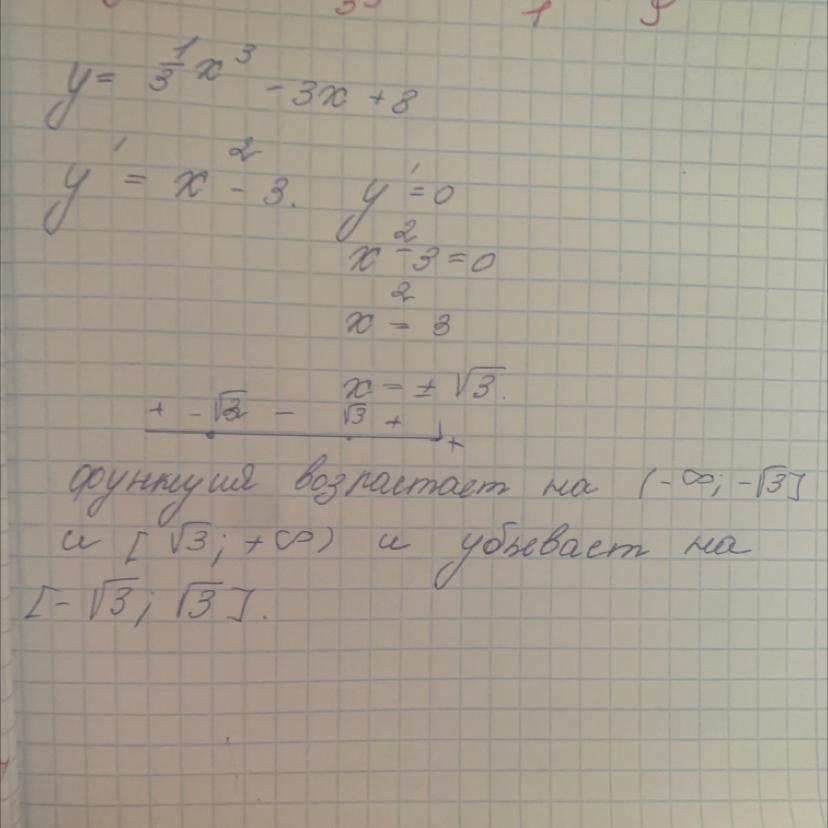 y = 1/3 x³ - 3x + 8
y' = x² - 3. y' = 0
x² - 3 = 0
x² = 3
x = ± √3.
+ -√3 - √3 +
функция возрастает на (-∞; -√3]
и [√3; +∞) и убывает на
[-√3; √3].